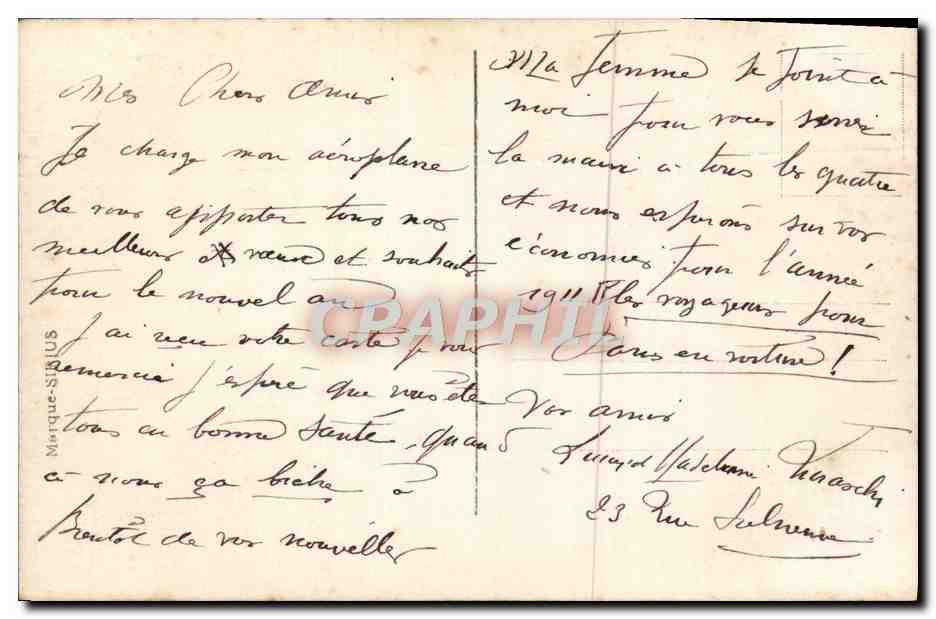 Mes Chers Amis
Je charge mon aéroplane
de vous apporter tous nos
meilleurs vœux et souhaits
pour le nouvel an
J'ai reçu votre carte je vous
remercie j'espère que vous ete
tous en bonne santé, quand
à nous ça biche à
Bientôt de vos nouvelles
Ma femme se joint à
moi pour vous serrer
la main à tous les quatre
et nous esperons sur vos
économies pour l'année
1911 les voyageurs pour
Paris en voiture!
Vos amis
23 Rue
Marque-SIRIUS
CPAPHIL